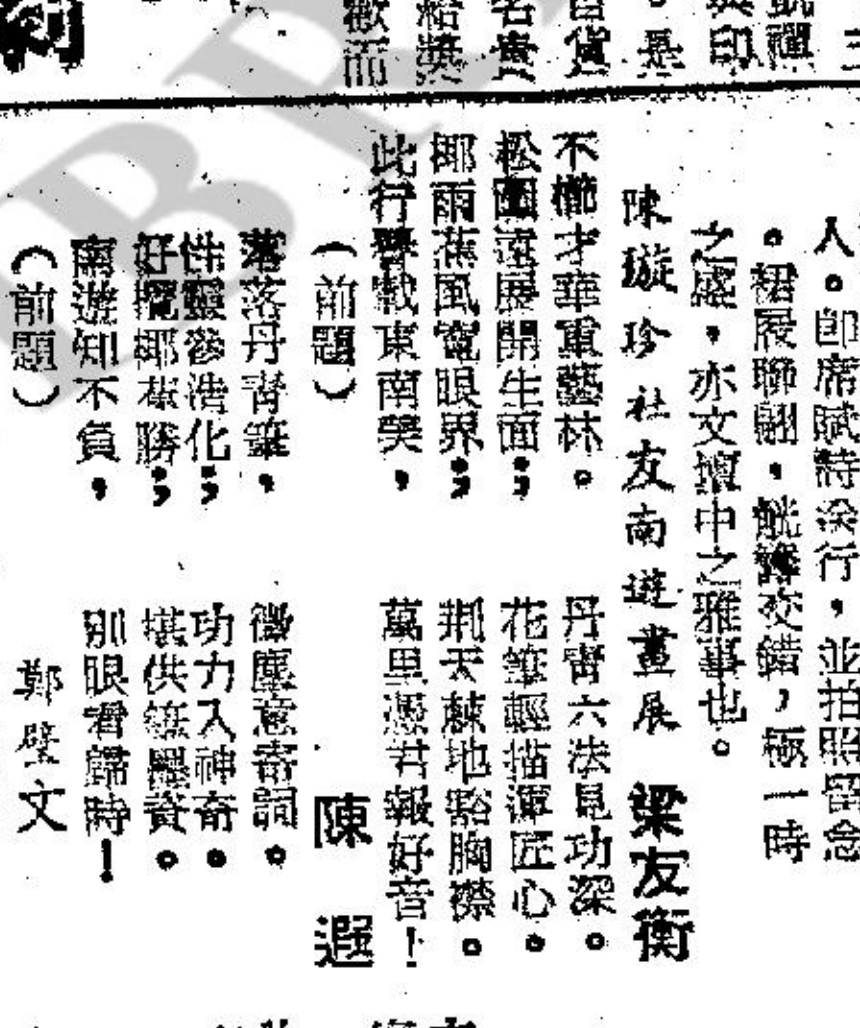 三
禪
印
。是
百貨
名貴
給獎
而
人。即席賦詩送行,並拍照留念
。裙屐聯翩,觥籌交錯,極一時
之盛,亦文壇中之雅事也。
陳璇珍社友南遊畫展 梁友衡
不櫛才華重藝林。 丹青六法見功深。
松園遠展開生面; 花筆輕描渾匠心。
椰雨蕉風寬眼界; 荊天棘地豁胸襟。
此行譽載東南美, 萬里憑君報好音!
(前題) 陳遐
落落丹青筆, 微塵意寄詞。
性靈參浩化; 功力入神奇。
好攬椰蕉勝; 堪供墨資。
南遊知不負, 別眼看歸時!
(前題) 鄭璧文